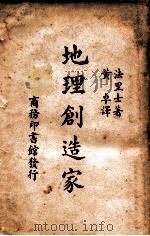 法里士著
黄卓譯
地理創造家
商務印書館發行
www.mtoou.info